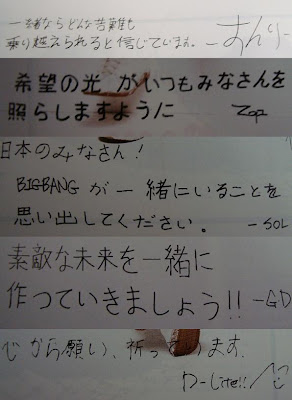 一緒ならどんな苦難も
乗り越えられると信じています。 —すんり—
希望の光 がいつもみなさんを
照らしますように TOP
日本のみなさん!
BIGBANG が 一緒にいることを
思い出してください。 - SOL
素敵な未来を一緒に
作っていきましょう!! -GD
心から願い、祈っています。
D-Lite!!